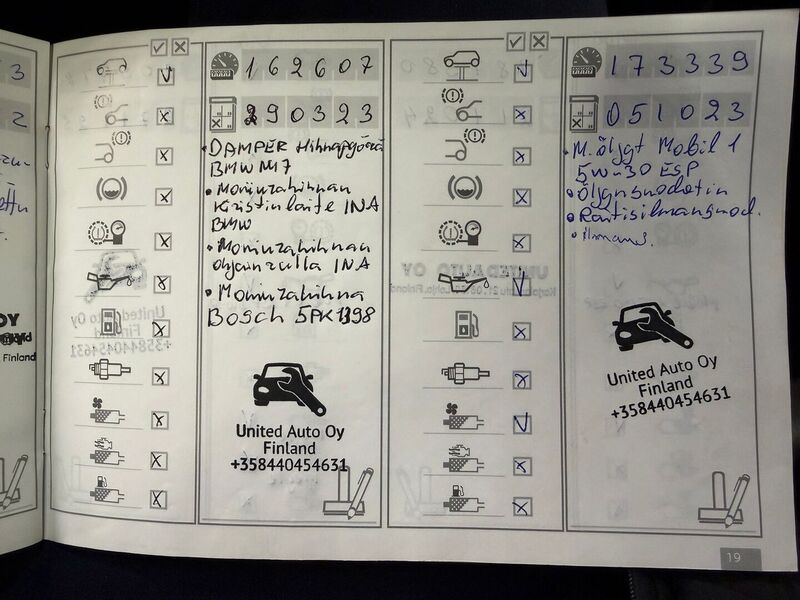 3
2
OY
Finland
162607
290323
• DAMPER Hihnapyörä
BMW M47
• Moniurahihnan
Kiristinlaite INA
BMW
• Moniurahihnan
ohjainrulla INA
• Moniurahihna
Bosch 5PK1398
United Auto Oy
Finland
+358440454631
173339
051023
• M.öljyt Mobil 1
5W-30 ESP
• Öljynsuodatin
• Raitisilmansuod.
United Auto Oy
Finland
+358440454631
UNITED AUTO OY
19